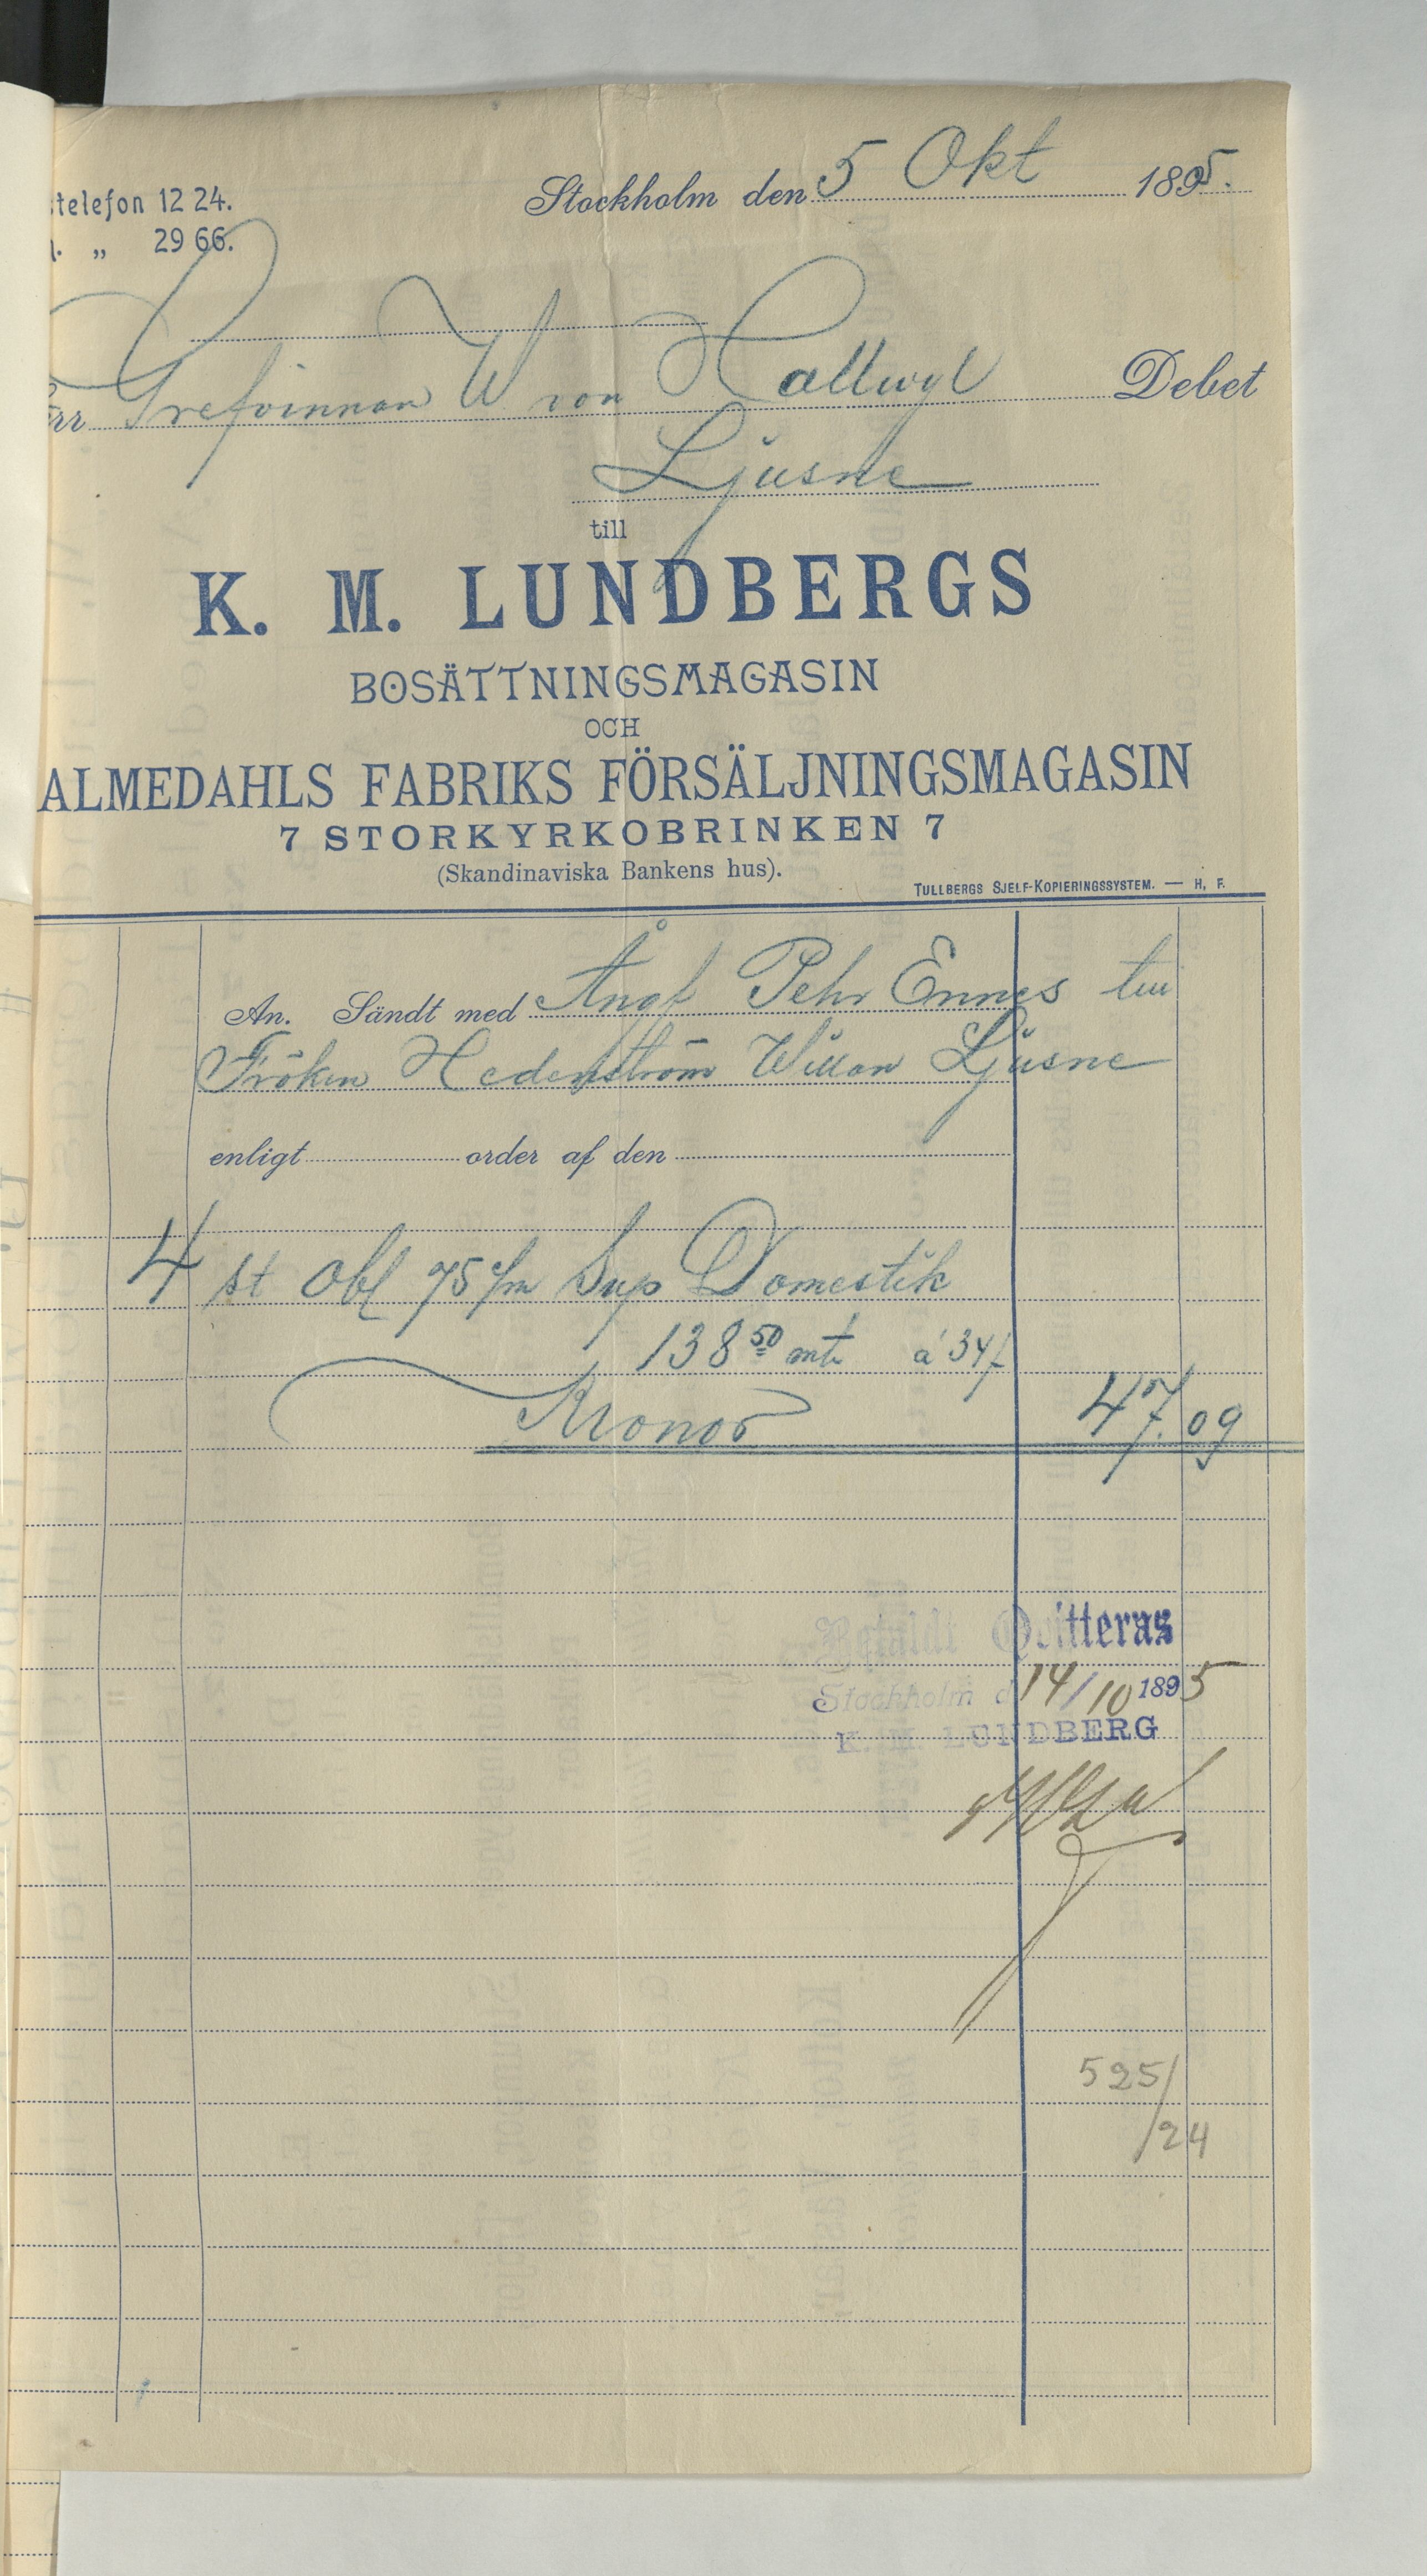 telefon 12 24.
Stockholm den 5 Okt 1895.
„ 29 66.
Grefvinnan W von Hallwyl Debet
Ljusne
till
K. M. LUNDBERGS
BOSÄTTNINGSMAGASIN
OCH
ALMEDAHLS FABRIKS FÖRSÄLJNINGSMAGASIN
7 STORKYRKOBRINKEN 7
(Skandinaviska Bankens hus).
TULLBERGS SJELF-KOPIERINGSSYSTEM. — H, F.
An. Sändt med Ångf Pehr Ennes till
Fröken Hedenström Willan Ljusne
enligt order af den
4 st Obl 75 c/m Sup Domestik
138 50 mtr á 34f
Kronor 47.09
Betaldt Qvitteras
Stockholm d 14/10 1895
K. M. LUNDBERG
525/
/24